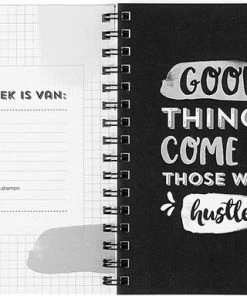 EK IS VAN:
dromen
GOOD
THING
COME
THOSE W
hustle